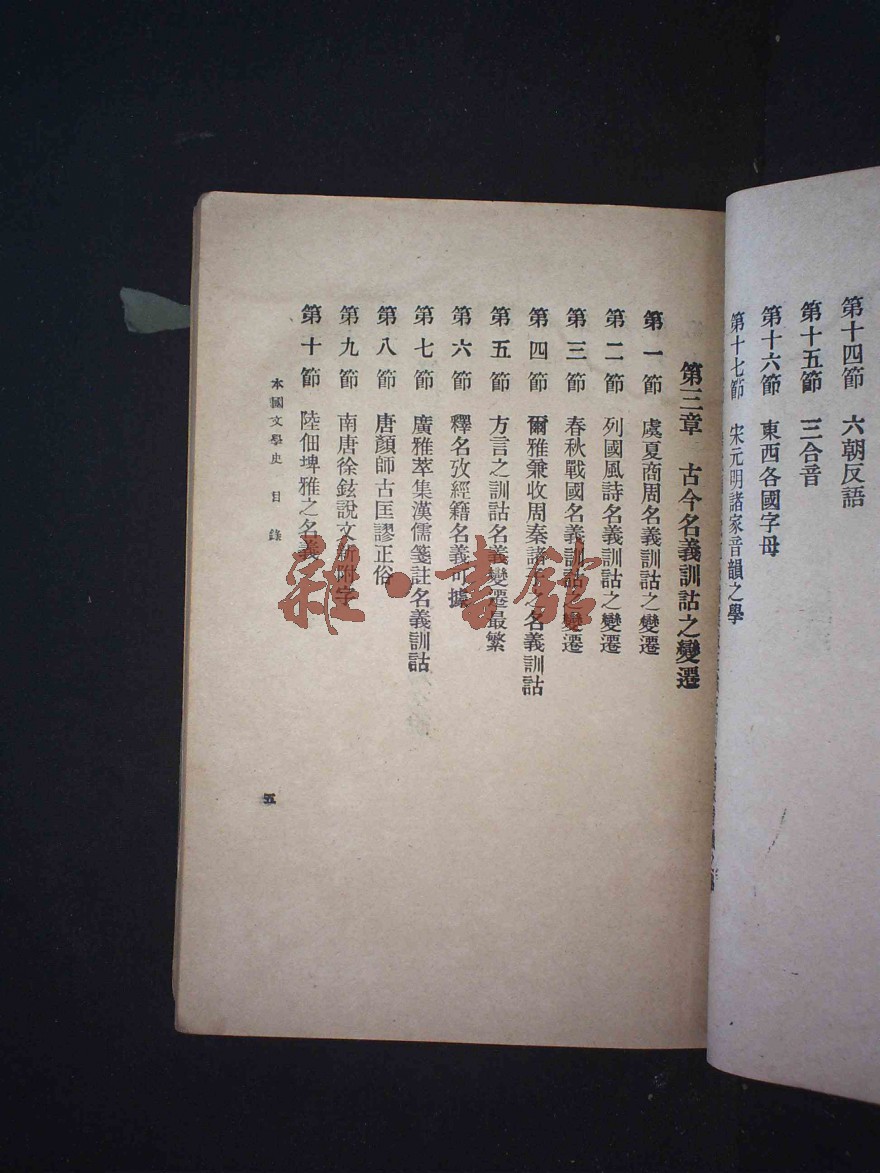 第十四節　六朝反語
第十五節　三合音
第十六節　東西各國字母
第十七節　宋元明諸家音韻之學
第三章　古今名義訓詁之變遷
第一節　虞夏商周名義訓詁之變遷
第二節　列國風詩名義訓詁之變遷
第三節　春秋戰國名義訓詁之變遷
第四節　爾雅兼收周秦諸子之名義訓詁
第五節　方言之訓詁名義變遷最繁
第六節　釋名攷經籍名義可據
第七節　廣雅萃集漢儒箋註名義訓詁
第八節　唐顏師古匡謬正俗
第九節　南唐徐鉉說文新附字
第十節　陸佃埤雅之名義
本國文學史　目錄
五
雜·書館